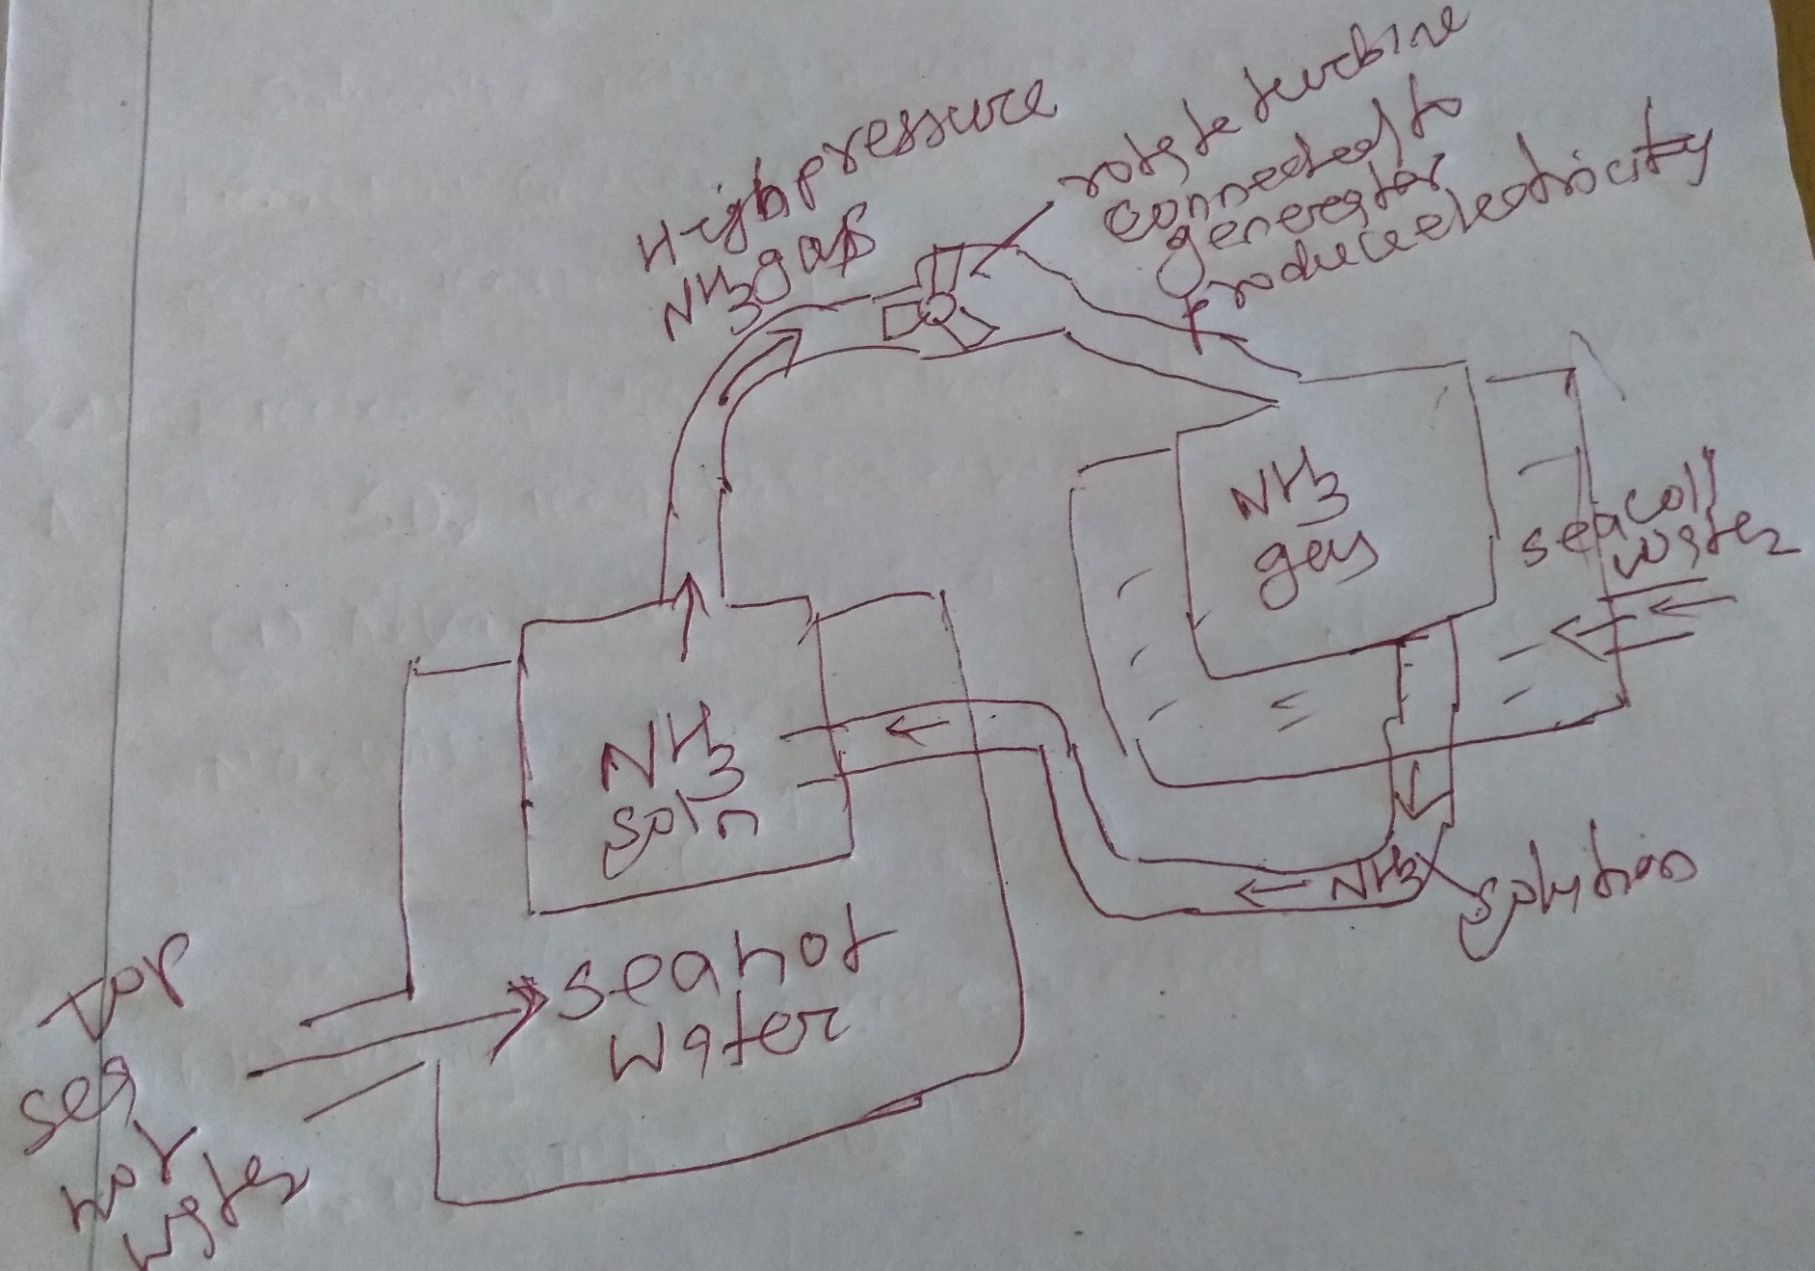 High pressure
NH3 gas
rotate turbine
connected to
generator
produce electrocity
NH3
gas
sea coll
water
NH3
soln
NH3
solution
sea hot
water
Top
sea
hot
water